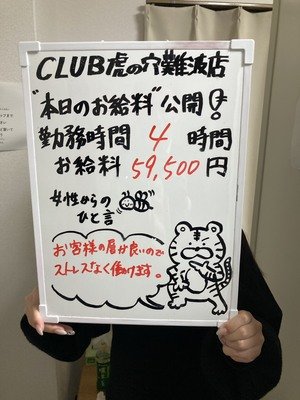 CLUB虎の穴難波店
"本日のお給料"公開!
勤務時間 4 時間
お給料 59,500円
女性からの
ひと言
お客様の層が良いので
ストレスなく働けます。